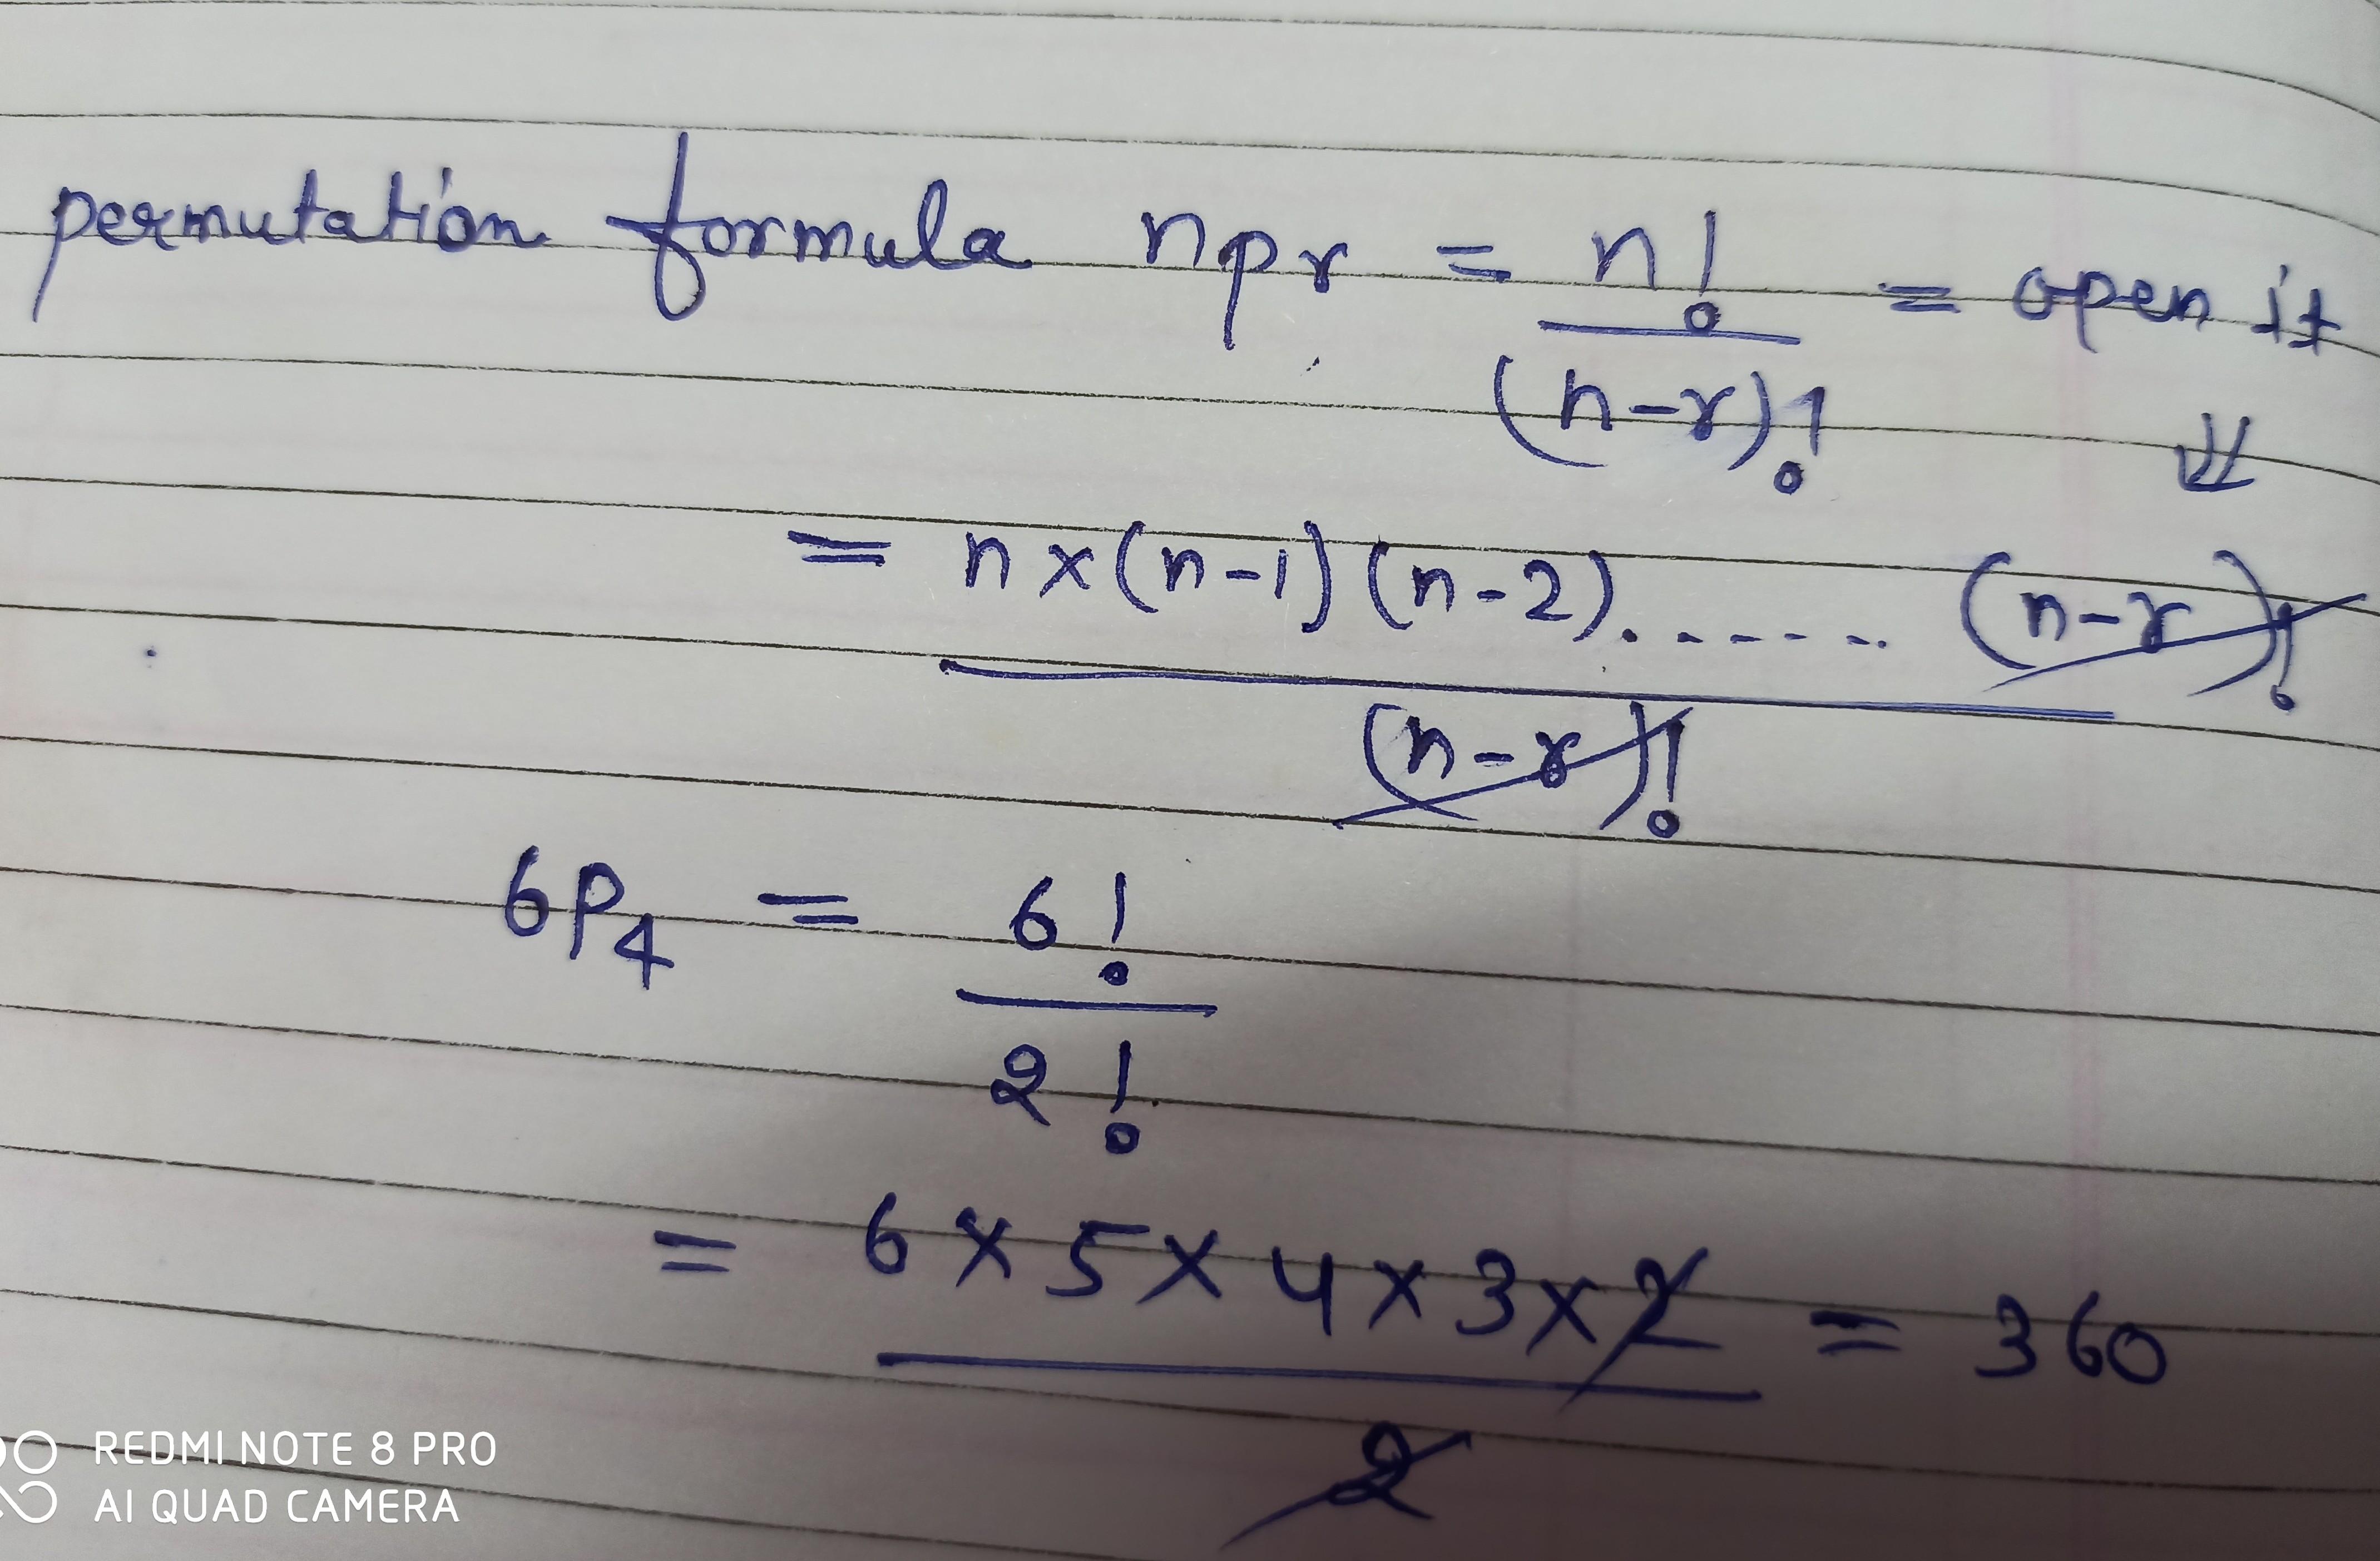 permutation formula npr = n! / (n-r)! = open it
⇓
= n×(n-1)(n-2)....... (n-r)! / (n-r)!
6P4 = 6! / 2!
= 6×5×4×3×2 / 2 = 360
REDMI NOTE 8 PRO
AI QUAD CAMERA